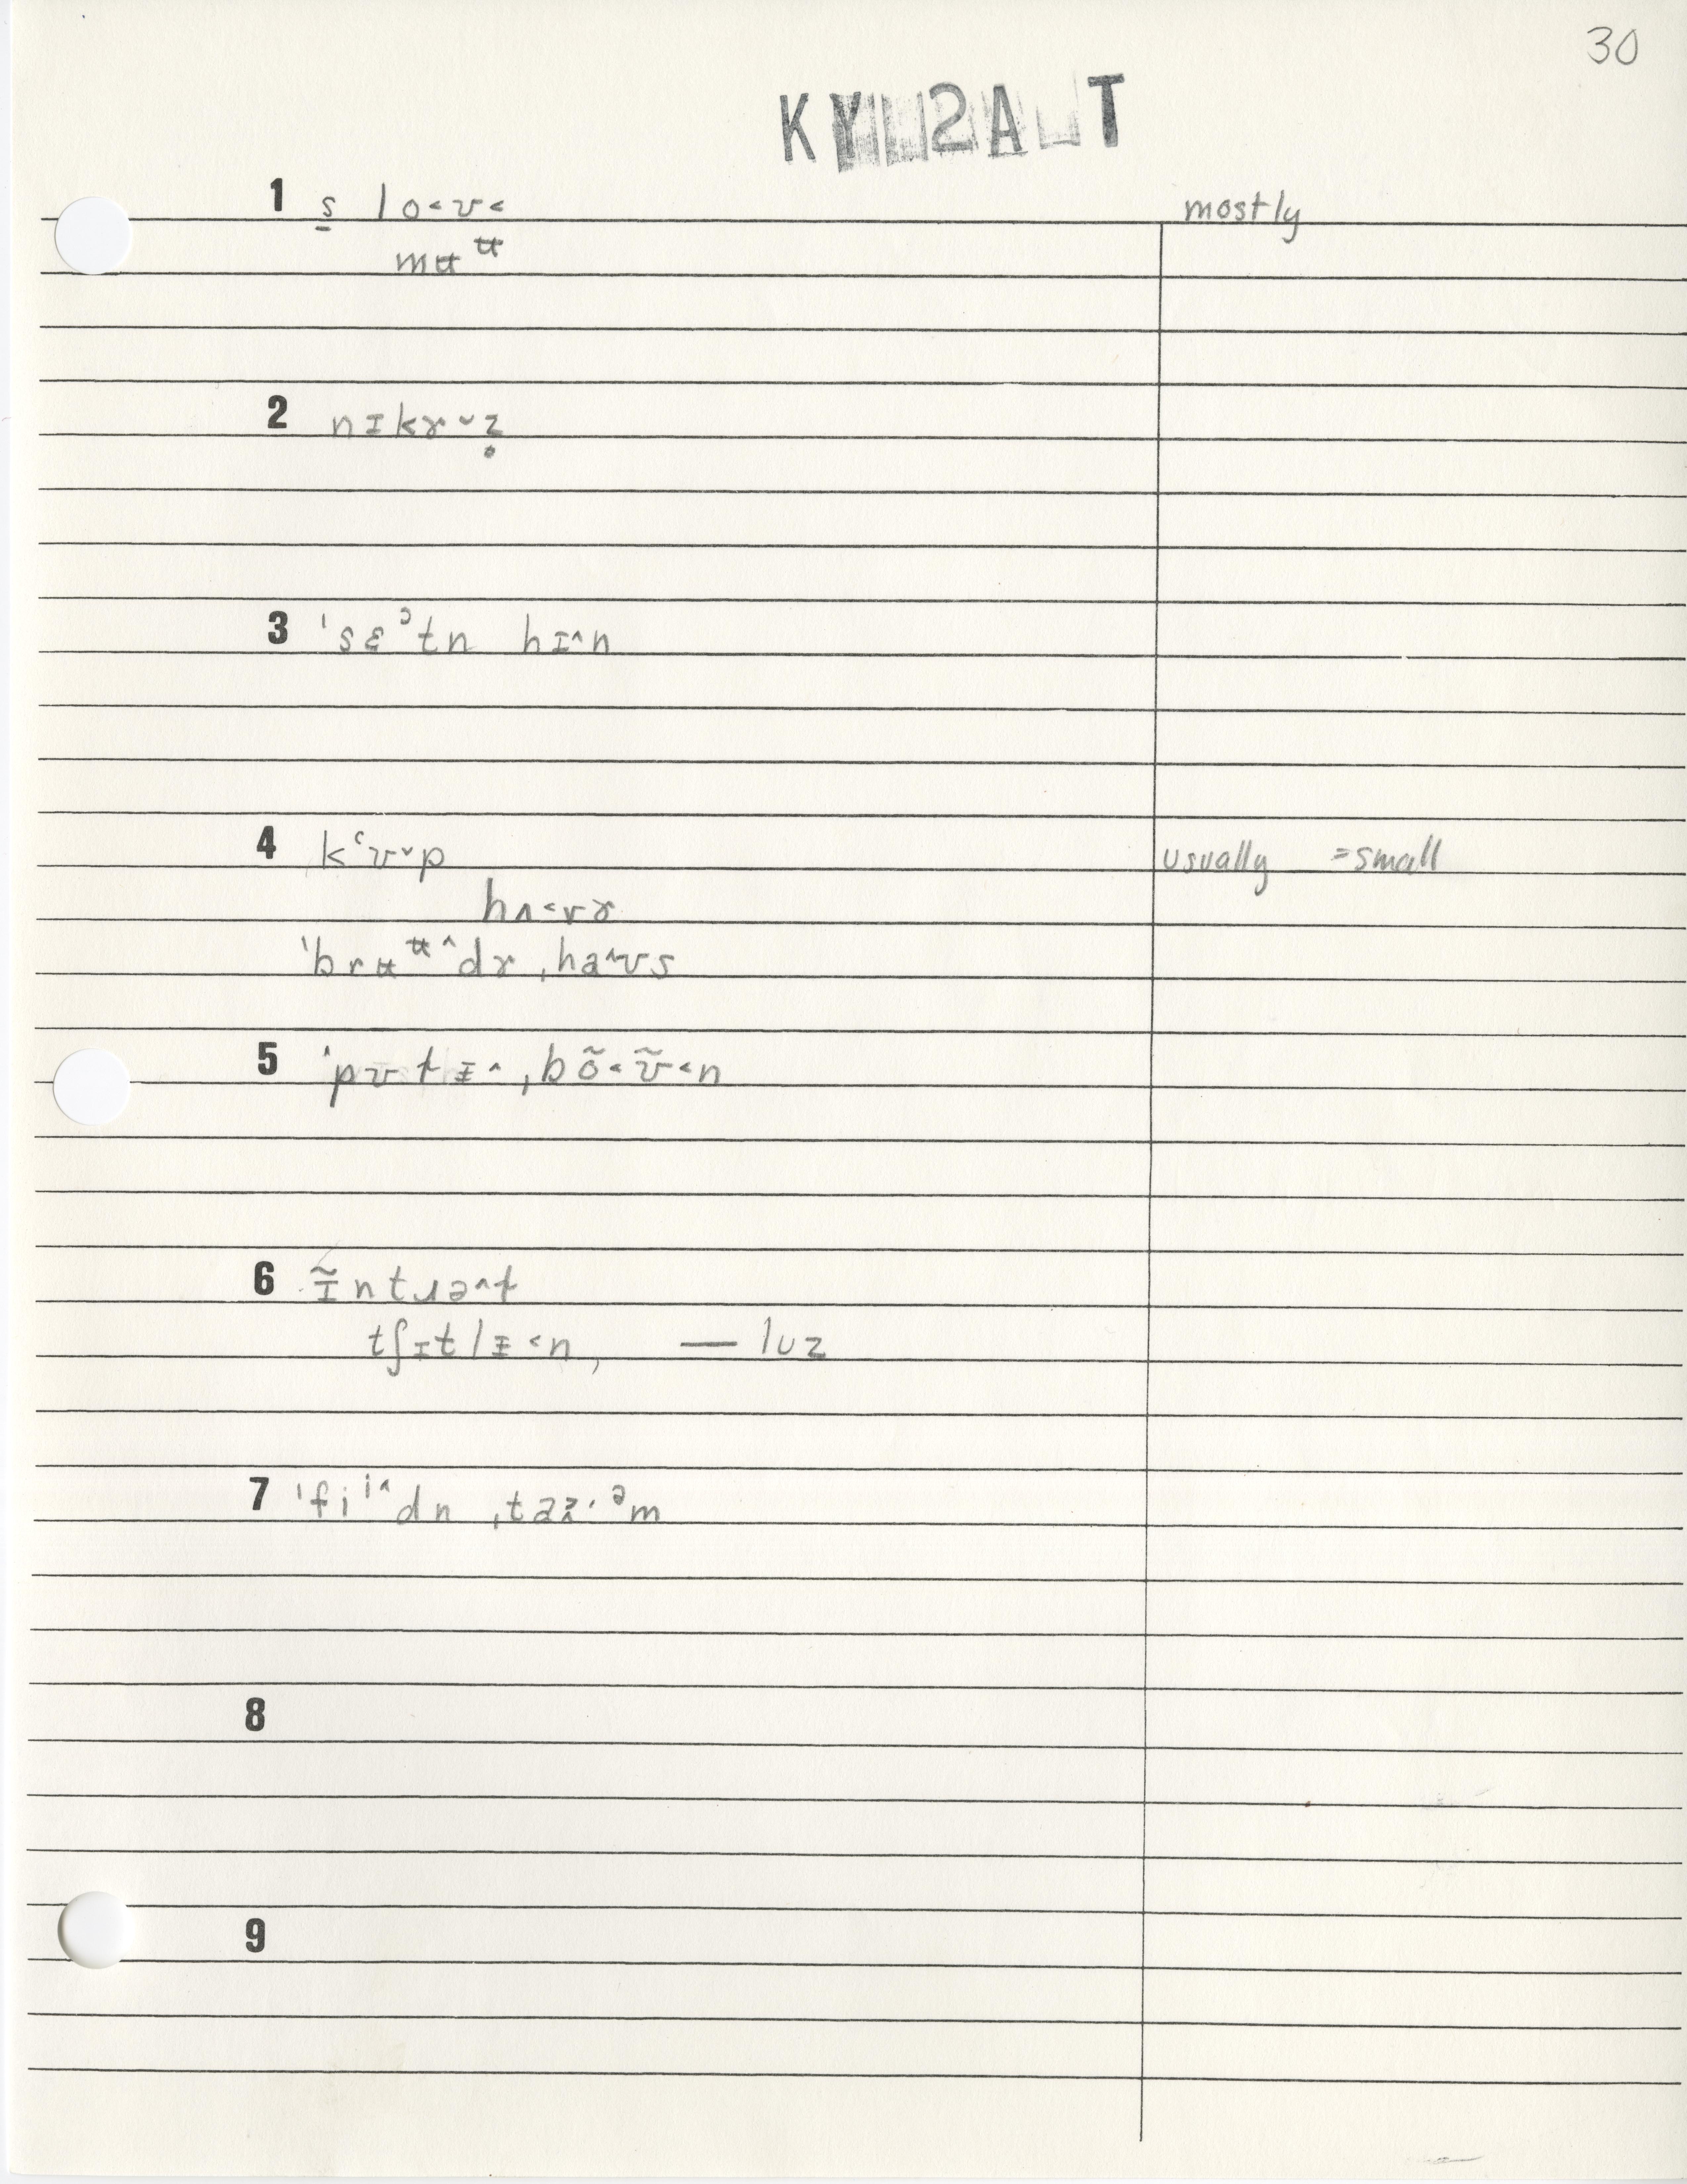 30
KY 2A T
1 s̠ lo˂ʊ˂ mostly
mʉᶶ
2 nɪkɚ˅z̥
3 ˈsɛᵓtn hɪ˄n
4 kʿʊ˅p usually =small
hʌ˂vɚ
ˈbrʉᶶ˄dɚ ˌha˄ʊs
5 ˈpʊtɪ˄ ˌbõ˂ʊ̃˂n
6 ɪ̃ntɹə˄t
tʃɪtlɪ˂n, — luz
7 ˈfiⁱ˄dn ˌtaɪ·ᵊm
8
9